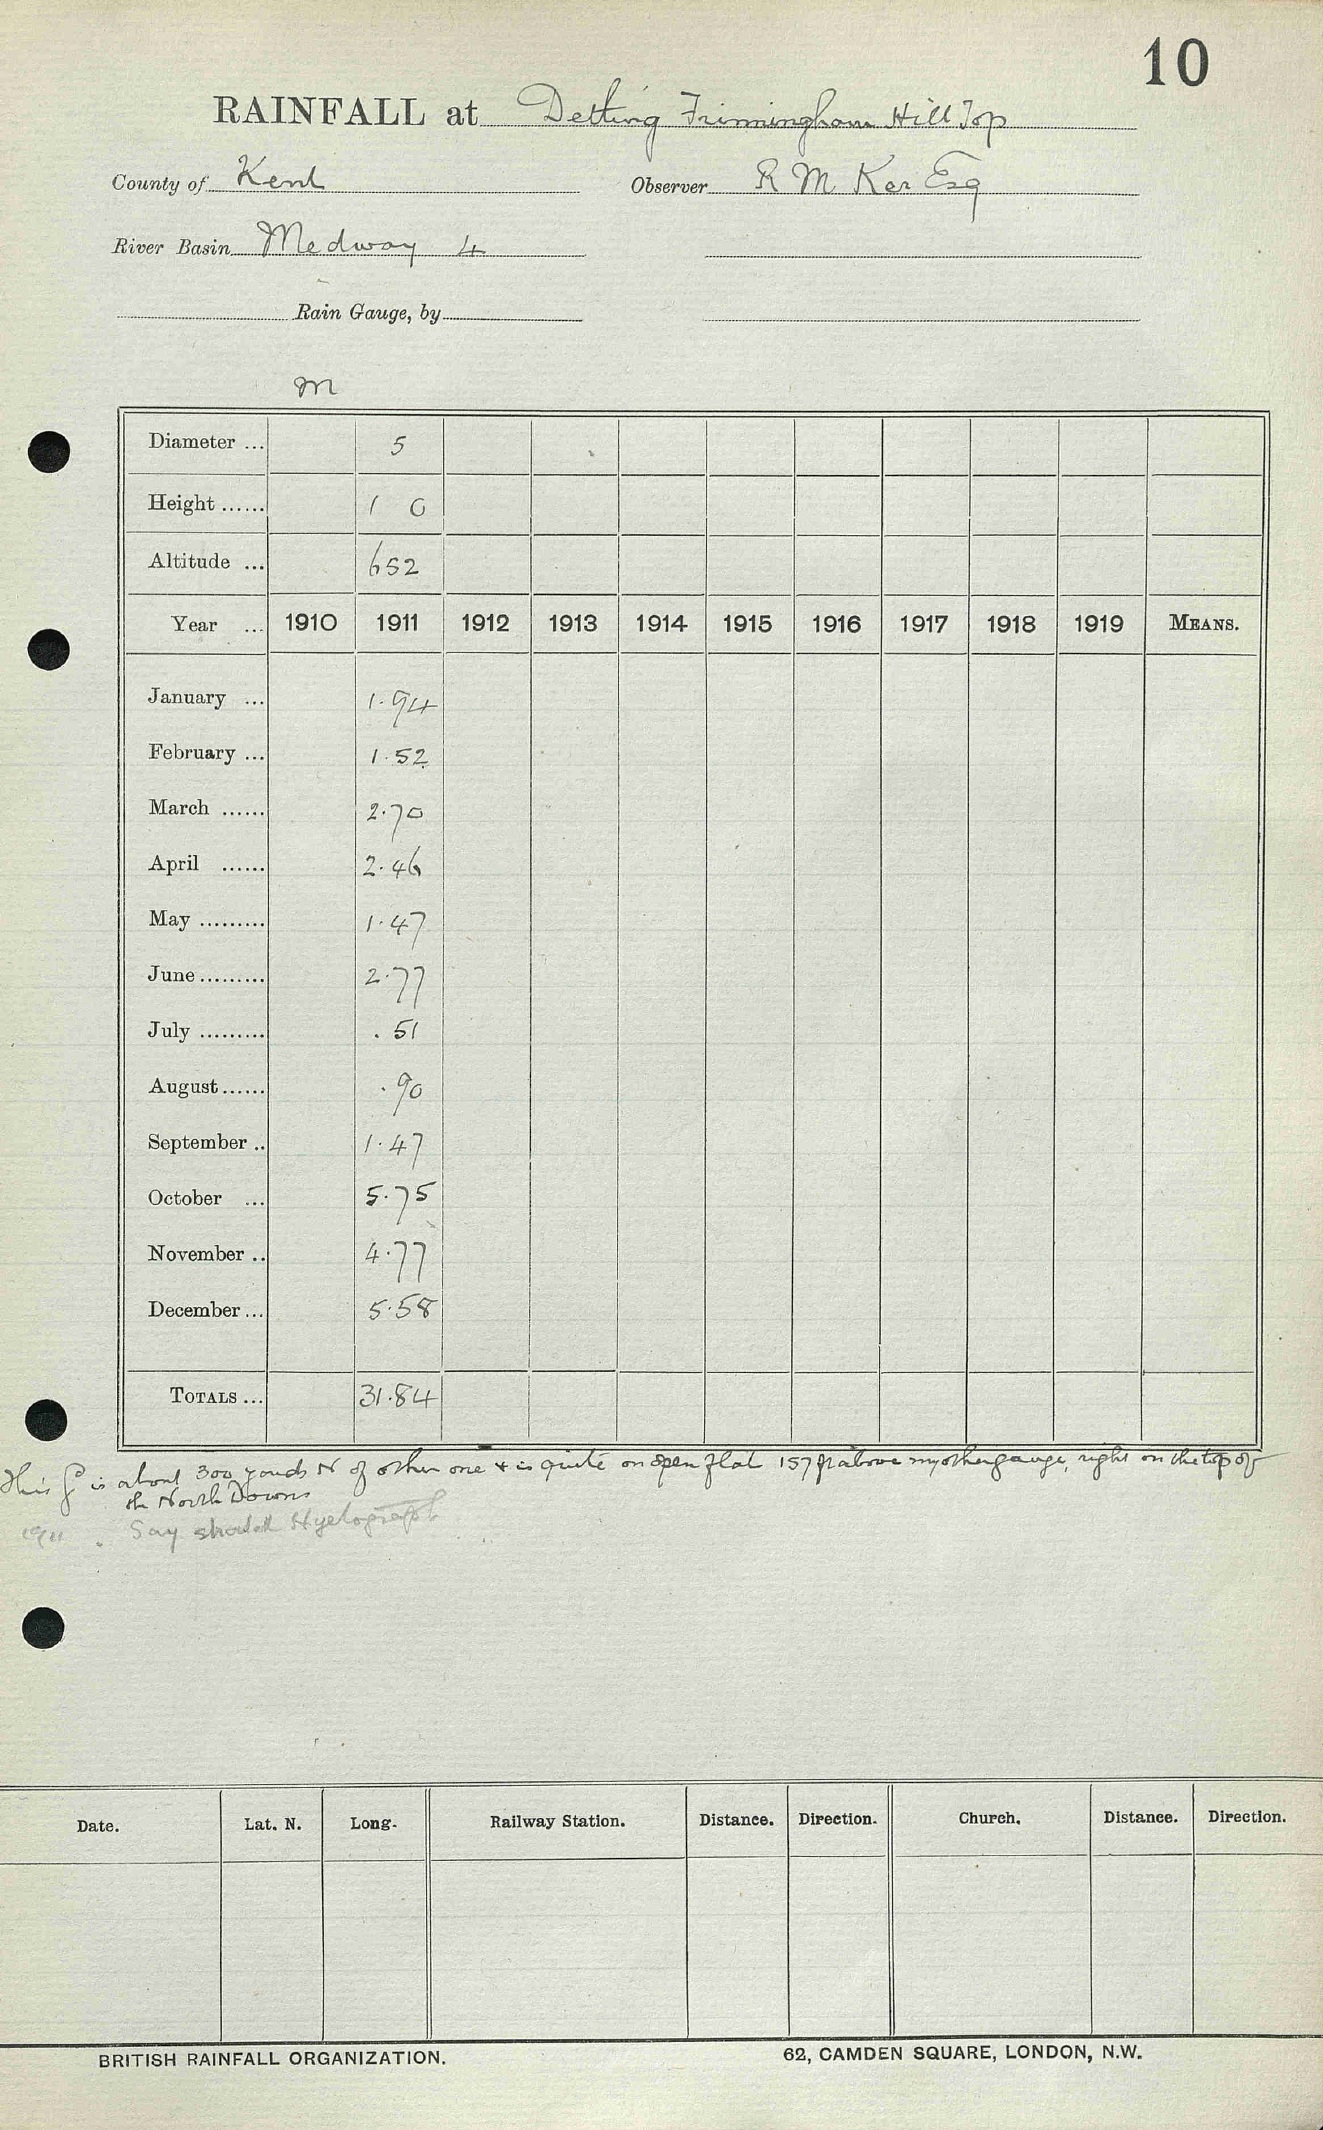 10
RAINFALL at Detling Frinningham Hill Top
County of Kent Observer R M Ker Esq
River Basin Medway 4
Rain Gauge, by
M
Diameter ... 5
Height ...... 1 0
Altitude ... 652
Year ... 1910 1911 1912 1913 1914 1915 1916 1917 1918 1919 MEANS.
January ... 1.94
February ... 1.52
March ...... 2.70
April ...... 2.46
May ......... 1.47
June ......... 2.77
July ......... .51
August ...... .90
September .. 1.47
October ... 5.75
November .. 4.77
December ... 5.58
TOTALS ... 31.84
This G is about 300 yards N of other one & is quite on open flat 157 ft above my other gauge, right on the top of
the North Downs
1911 . Say should Hyetograph
Date. Lat. N. Long. Railway Station. Distance. Direction. Church. Distance. Direction.
BRITISH RAINFALL ORGANIZATION. 62, CAMDEN SQUARE, LONDON, N.W.